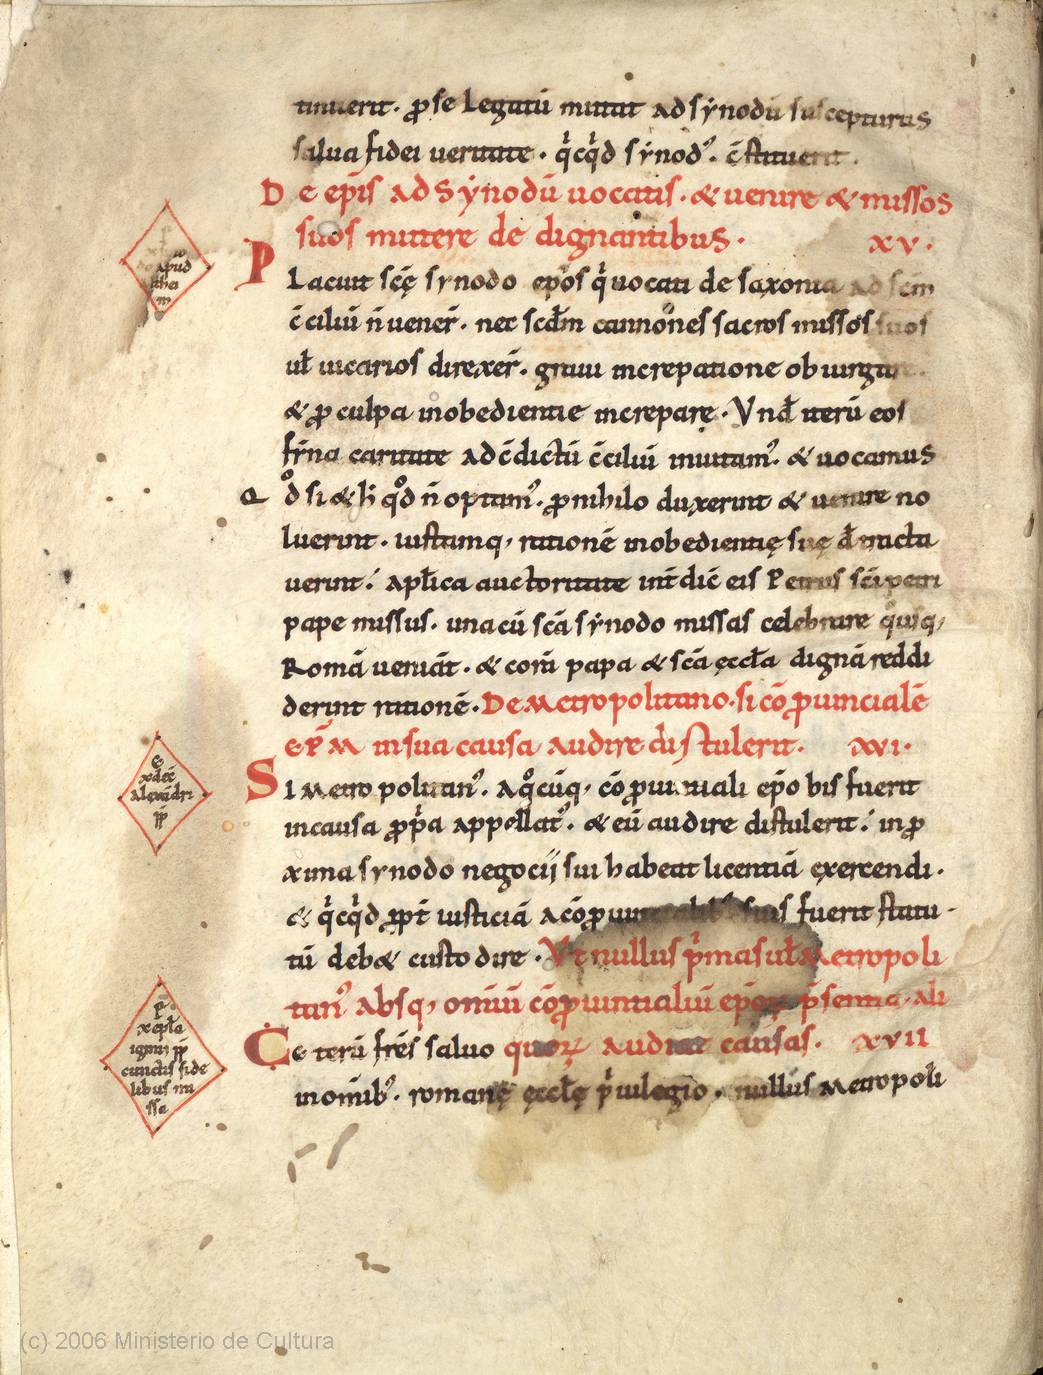 tinuerit. ꝓ se Legatū mittat ad synodū suscepturus
salua fidei ueritate. qͥcqͥd synodꝰ. c̄stituerit.
De ep̄is ad synodū uocatis. & uenire & missos
suos mittere de dignantibus. xv.
Placuit sc̄ę synodo ep̄os qͥ uocati de saxonia ad sc̄m
c̄ciliū n̄ uener̄. nec scd̄m cannones sacros missos suos
ul̄ uicarios direxer̄. graui increpatione obiurgare.
& ꝓ culpa inobedientie increpare. Vnd̄ iterū eos
fr̄na caritate ad c̄dictū c̄ciliū inuitamꝰ. & uocamus
Qͦd si & h̄ qͦd n̄ optamꝰ. ꝓ nihilo duxerint & uenire no
luerint. iustamq, rationē inobedientię suę d̄tracta
uerint. apl̄ica auctoritate int̄dic̄ eis Petrus sc̄i petri
pape missus. una cū sc̄a synodo missas celebrare quisq,
Romā ueniāt. & corā papa & sc̄a ęccl̄a dignā reddi
derint rationē. De Metropolitano. si cōꝓuincialē
ep̄m in sua causa audire distulerit. xvi.
Si Metropolitanꝰ. aqͦcūq, cōꝓuinciali ep̄o bis fuerit
incausa ꝓpͥa appellatꝰ. & eū audire distulerit. in ꝓ
xima synodo negocij sui habeat licentiā exercendi.
& qͥcqͥd ꝓpt̄ iusticiā a cōꝓuintialibꝰ suis fuerit statu
tū deb& custodire. Vt nullus pͥmas ul̄ Metropoli
tanꝰ absq, omiū cōꝓuintialiū ep̄oꝝ p̄sentia. ali
Ceterū fr̄es saluo quoꝝ audiat causas. xvii
in omībꝰ. romanę ęccl̄ę pͥuilegio. nullus Metropoli
apud
&
x dec̄
Alexādri
pp̄
x epl̄a
igini pp̄
cunctis fide
libus mi
ssa
(c) 2006 Ministerio de Cultura